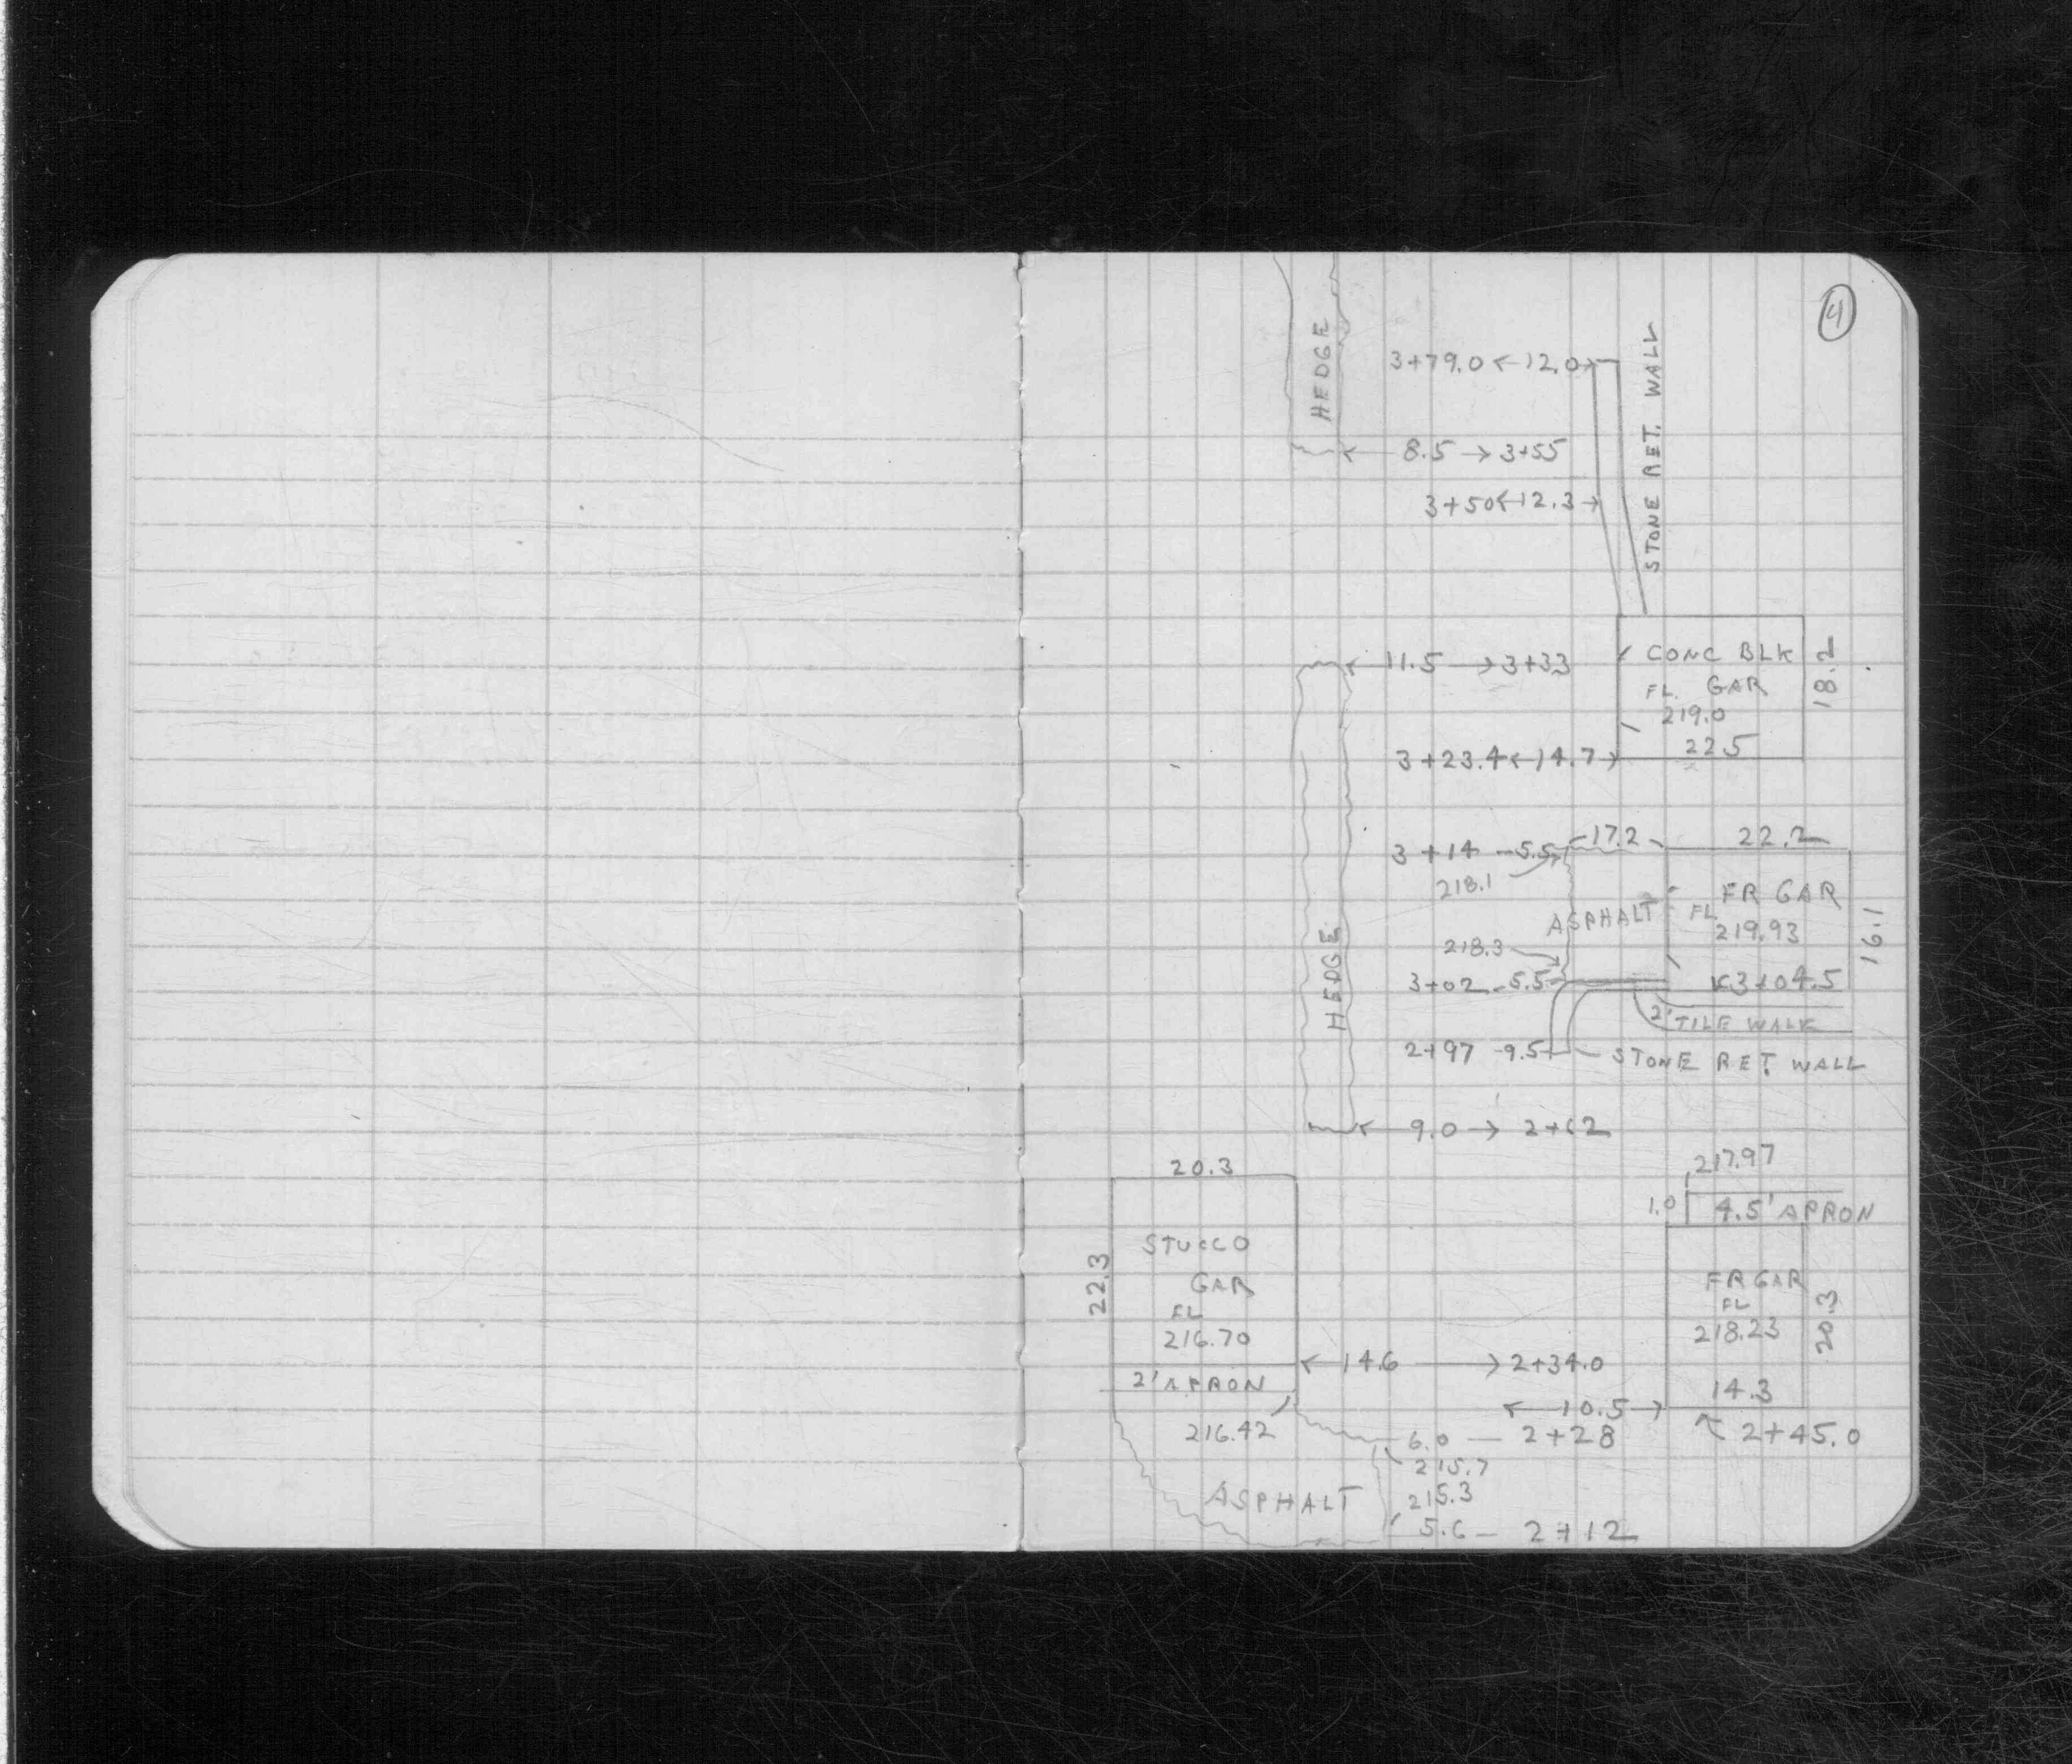 4
HEDGE
3+79.0 12.0
STONE RET. WALL
8.5 3+55
3+50 12.3
11.5 3+33
CONC BLK
FL. GAR
219.0
22.5
18.2
3+23.4 14.7
17.2
22.2
3+14 5.5
218.1
FR GAR
FL
219.93
ASPHALT
16.1
HEDGE
218.3
3+02 5.5
3+04.5
2' TILE WALK
2+97 9.5
STONE RET. WALL
9.0 2+62
20.3
217.97
1.0
4.5' APRON
STUCCO
GAR
FL
216.70
22.3
FR GAR
FL
218.23
20.3
14.6 2+34.0
2' APRON
14.3
10.5
216.42
6.0 2+28
2+45.0
215.7
ASPHALT
215.3
5.6 2+12